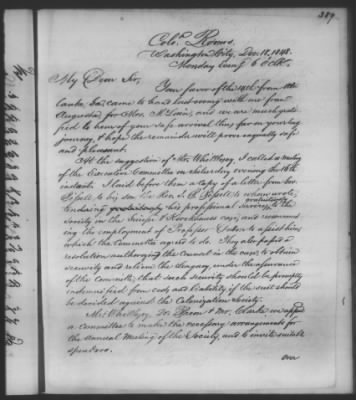 389
Colo. Rooms,
Washington City, Dec. 18, 1848.
Monday Evng 6 O'clk.
My Dear Sir,
Your favor of the 14th from
Ga. came to hand last evening with one from
Augusta for Mr. McLain, and we are much grati-
fied to hear of your safe arrival thus far on your long
journey. I hope the remainder will prove equally safe
and pleasant.
At the suggestion of Mr. Whittlesey, I called a meeting
of the Executive Committee on Saturday evening the 16th
instant. I laid before them a copy of a letter from
to his son the Rev. who wrote,
tendering gratuitously his professional services to the
Society in the case, and recommend-
ing the employment of Professor to assist him,
which the Committee agreed to do. They also passed a
resolution authorizing the Counsel in the case, to obtain
security and relieve the under the assurance
of the committee that such security should be promptly
indemnified from costs and liability if the suit should
be decided against the Colonization Society.
Mr. Whittlesey, Dr. & Mr. Clarke were apptd
a committee to make the necessary arrangements for
the annual Meeting of the Society, and to invite suitable
speakers.
over